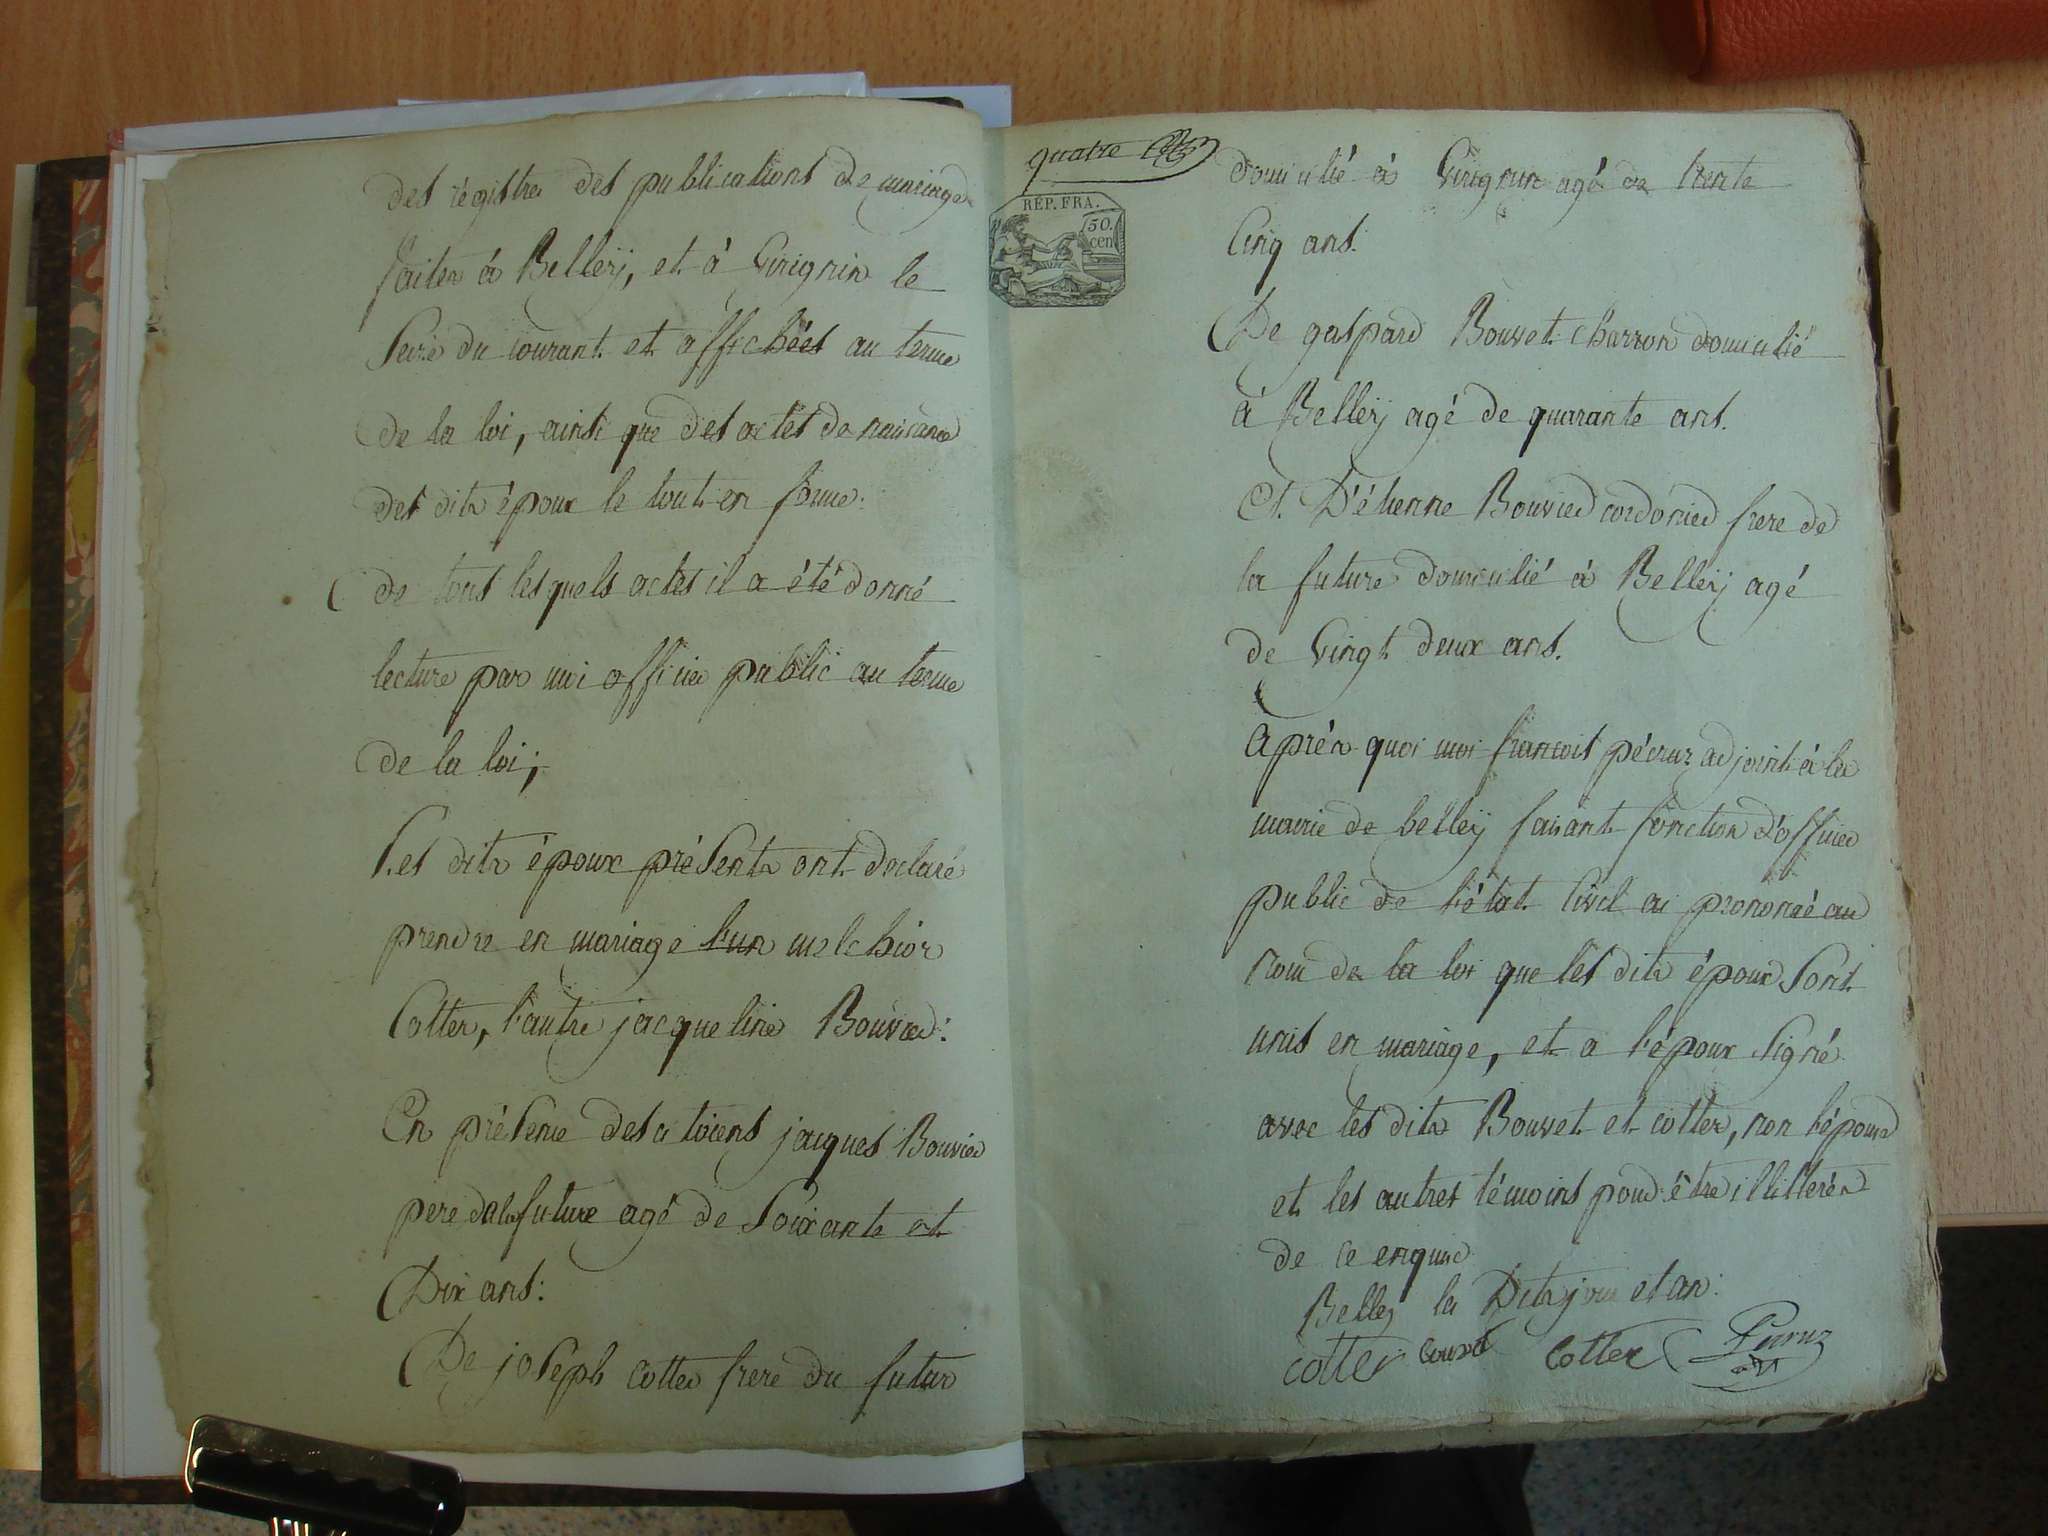 des régistres des publications de mariage
faites à Belley, et à Virignin le
Seize du courant et affichées au terme
de la loi, ainsi que des actes de naissance
des dits époux le tout en forme:
de tous lesquels actes il a été donné
lecture par moi officier public au terme
de la loi;
Les dits époux présents ont déclaré
prendre en mariage l'un melchior
Cotter, l'autre jacqueline Bouvier:
En présence des citoiens jacques Bouvier
pere de la future agé de Soixante et
Dix ans:
De joseph cotter frere du futur
quatre
RÉP. FRA.
50.
cen
domicilié à Virignin agé de trente
Cinq ans.
De gaspard Bouvet charron domicilié
à Belley agé de quarante ans.
Et D'étienne Bouvier cordonier frere de
la future domicilié à Belley agé
de Vingt deux ans.
Après quoi moi francois pécruz adjoint à la
mairie de belley faisant fonction d'officier
public de l'état Civil ai prononcé au
nom de la loi que les dits époux Sont
unis en mariage, et a l'époux Signé
avec les dits Bouvet et cotter, non l'épouse
et les autres témoins pour être illitterés
de ce enquis
Belley la Dits jour et an:
cotter bouvet cotter